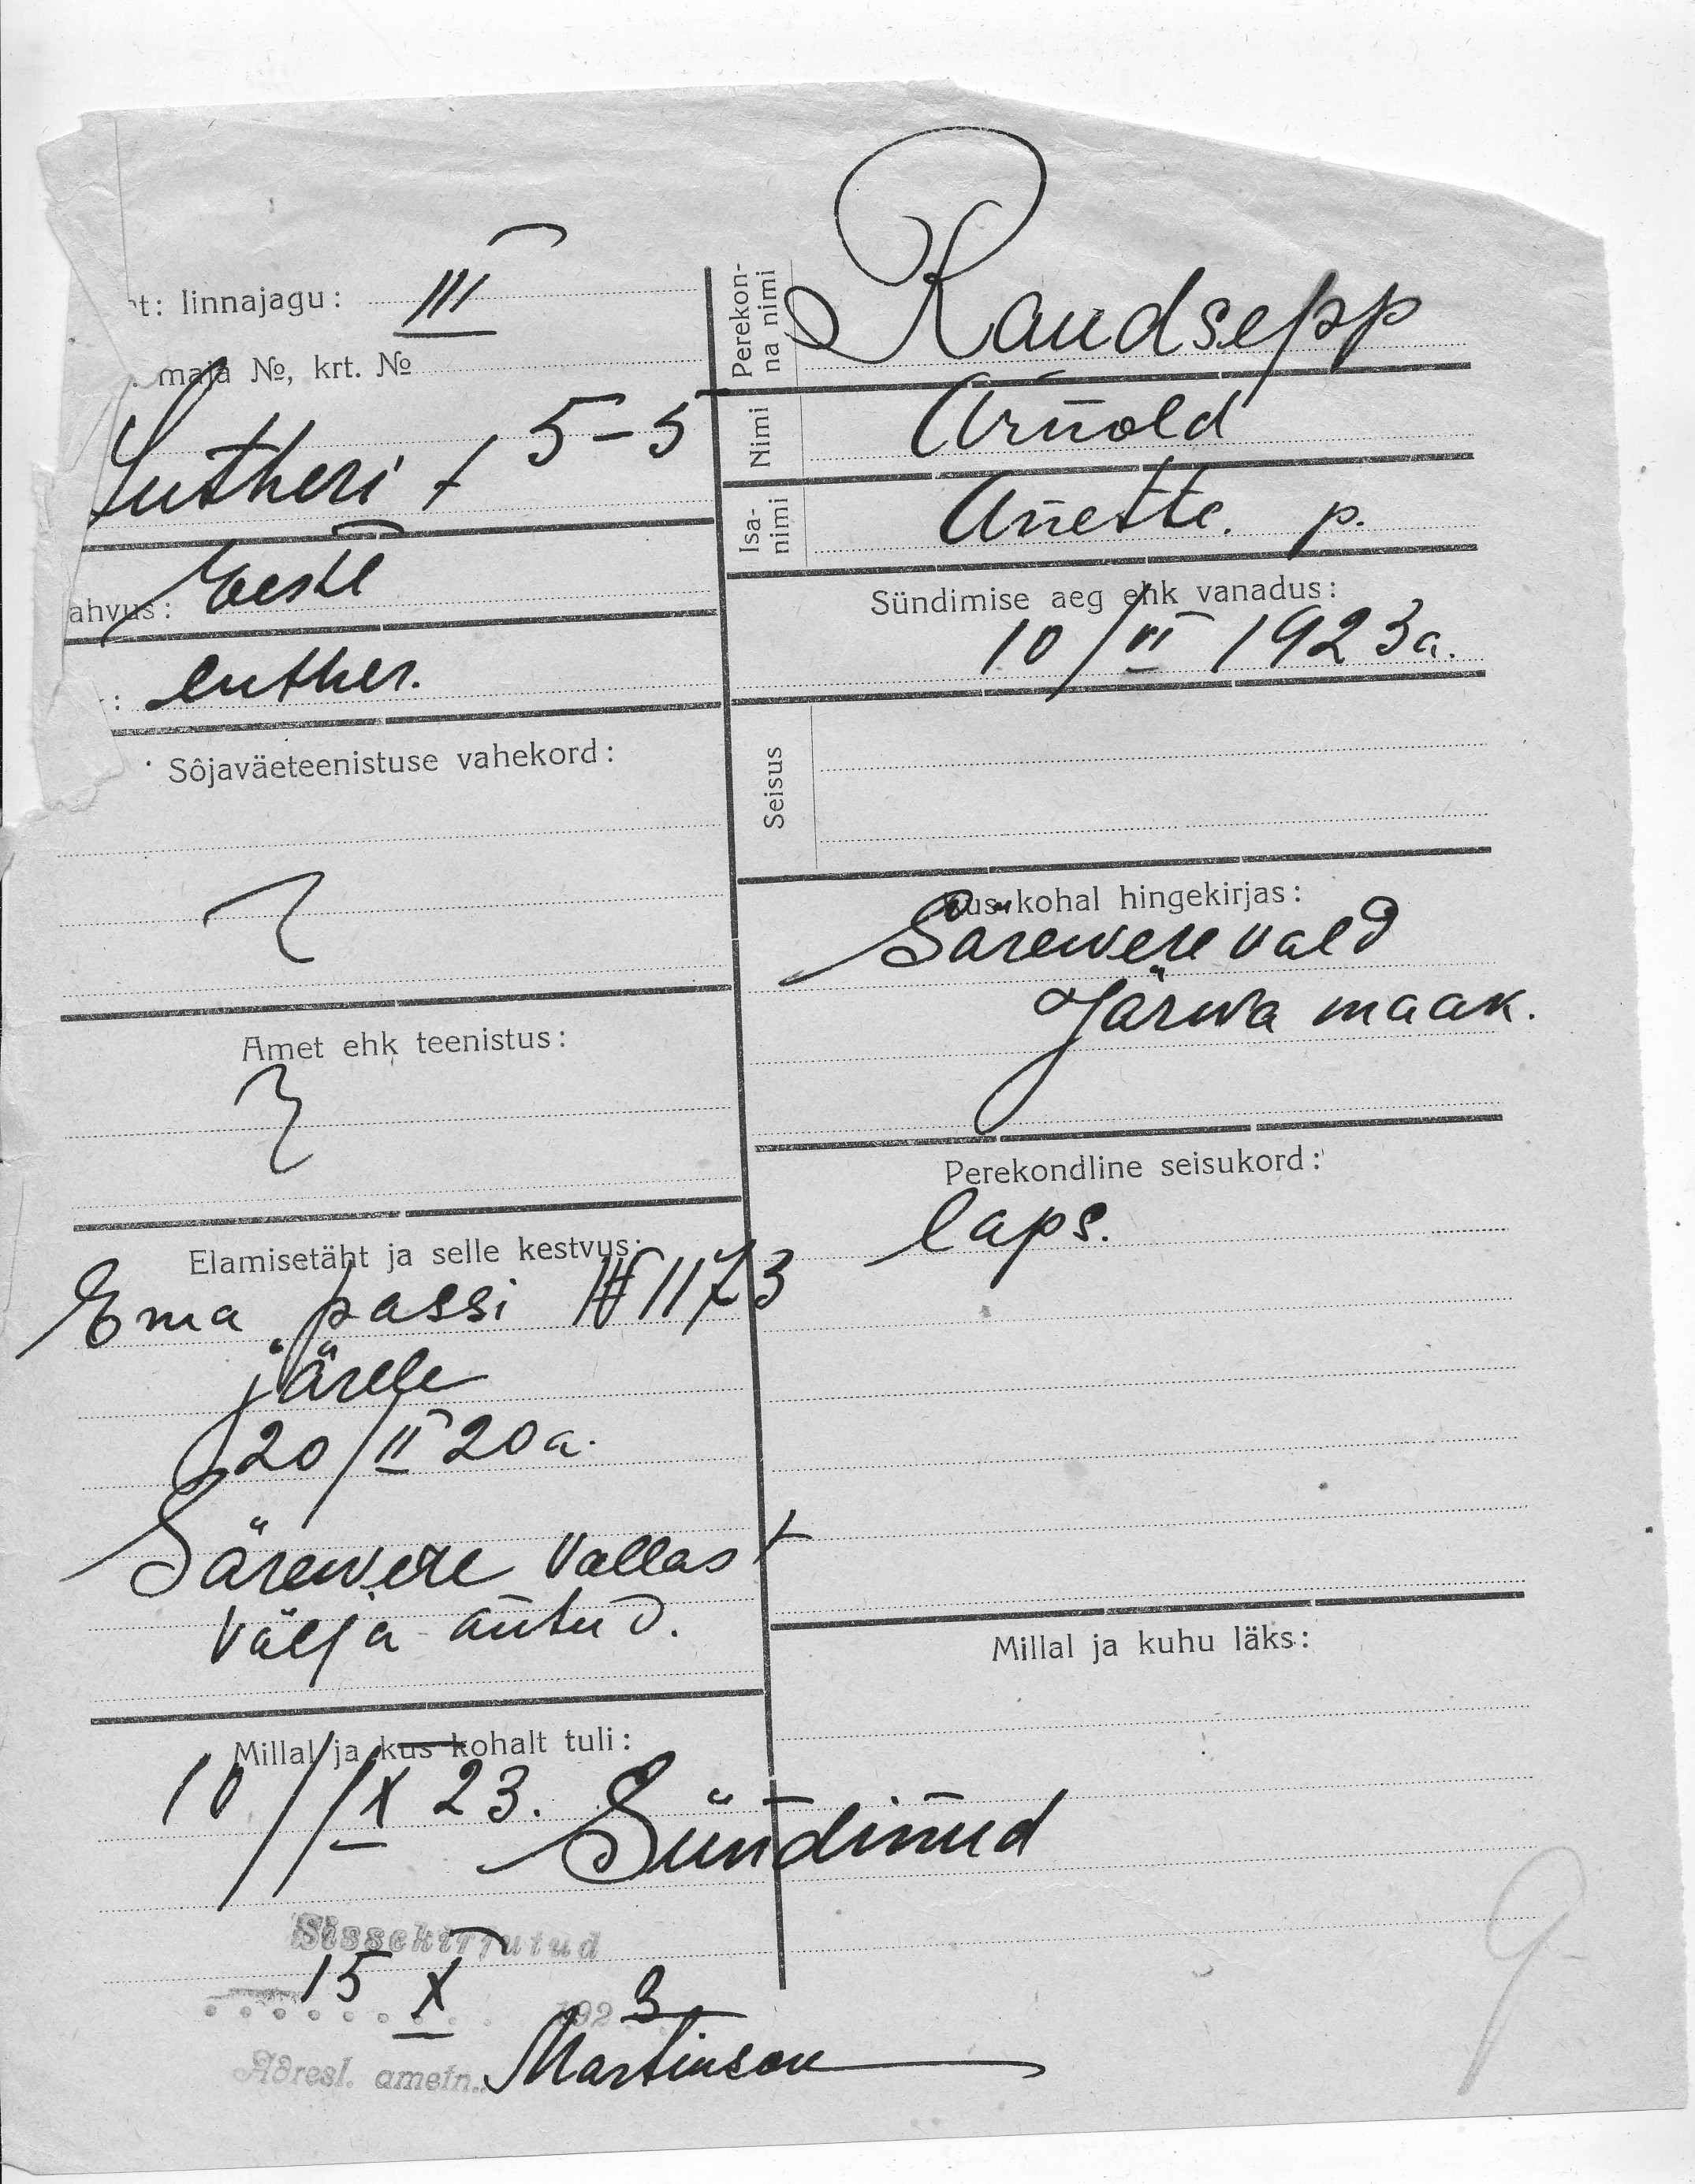 t: linnajagu: III
maja №, krt. №
Lutheri t 5-5
ahvus: Eesti
: luther.
Sõjaväeteenistuse vahekord:
Amet ehk teenistus:
Elamisetäht ja selle kestvus:
Ema passi № 1173
järele
20/II 20 a.
Särewere vallast
välja antud.
Millal ja kus kohalt tuli:
10/IX 23. Sündinud
Sissekirjutud
15 X 1923
Adresl. ametn. Martinson
Perekon-
na nimi
Raudsepp
Nimi
Arnold
Isa-
nimi
Anette. p.
Sündimise aeg ehk vanadus:
10/VI 1923 a.
Seisus
Kus kohal hingekirjas:
Särewere vald
Järwa maak.
Perekondline seisukord:
laps.
Millal ja kuhu läks:
9